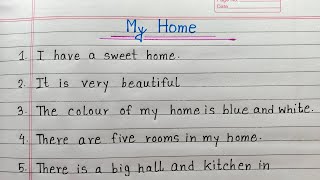 Date
My Home
1. I have a sweet home.
2. It is very beautiful
3. The colour of my home is blue and white.
4. There are five rooms in my home.
5. There is a big hall and kitchen in